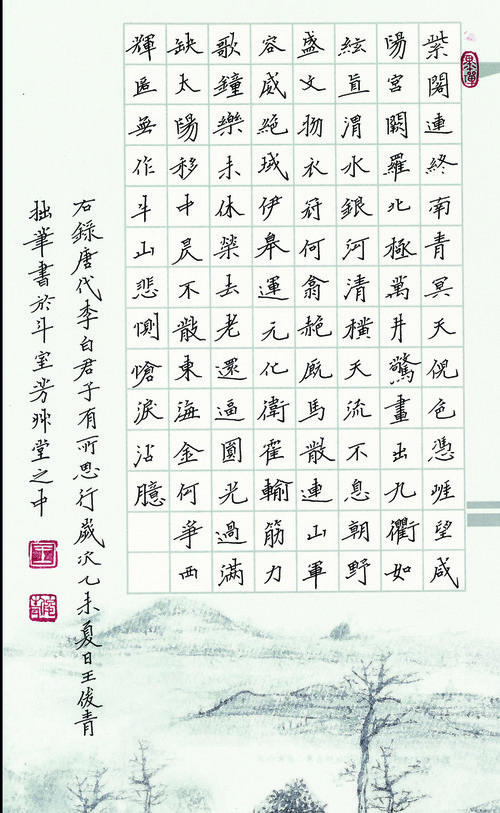 紫閣連終南青冥天倪色憑崕望咸
陽宮闕羅北極萬井驚畫出九衢如
絃直渭水銀河清橫天流不息朝野
盛文物衣冠何翕赩厩馬散連山軍
容威絕域伊皋運元化衛霍輸筋力
歌鐘樂未休榮去老還逼圓光過滿
缺太陽移中昃不散東海金何爭西
輝匿無作牛山悲惻愴淚沾臆
右錄唐代李白君子有所思行歲次乙未夏日王俊青
拙筆書於斗室芳艸堂之中